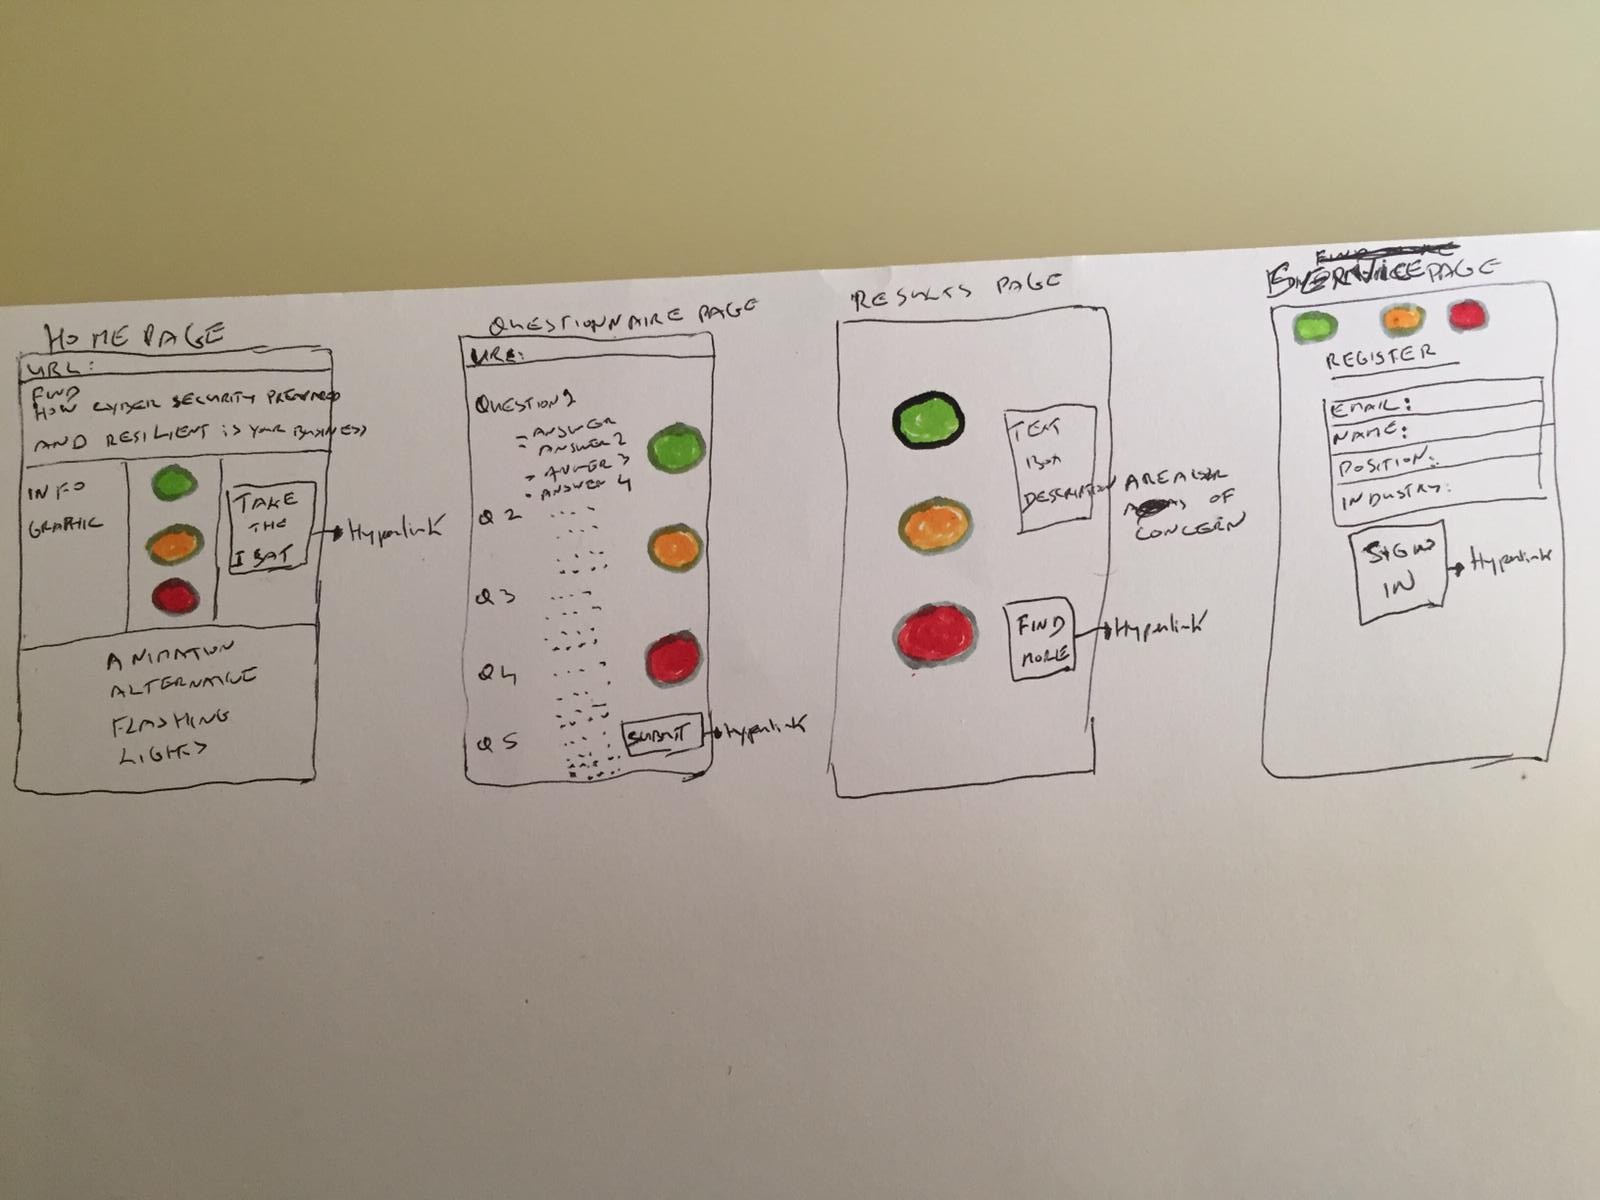 HOME PAGE
URL:
FIND
HOW CYBER SECURITY PREPARED
AND RESILIENT is YOUR BUSINESS
INFO
GRAPHIC
TAKE
THE
IBAT
Hyperlink
ANIMATION
ALTERNATIVE
FLASHING
LIGHTS
QUESTIONNAIRE PAGE
URL:
QUESTION 1
- ANSWER
- ANSWER 2
- ANSWER 3
- ANSWER 4
Q 2
Q 3
Q 4
Q 5
SUBMIT
Hyperlink
RESULTS PAGE
TEXT
BOX
DESCRIPTION
OF
CONCERN
FIND
MORE
Hyperlink
PAGE
REGISTER
EMAIL:
NAME:
POSITION:
INDUSTRY:
SIGN
IN
Hyperlink